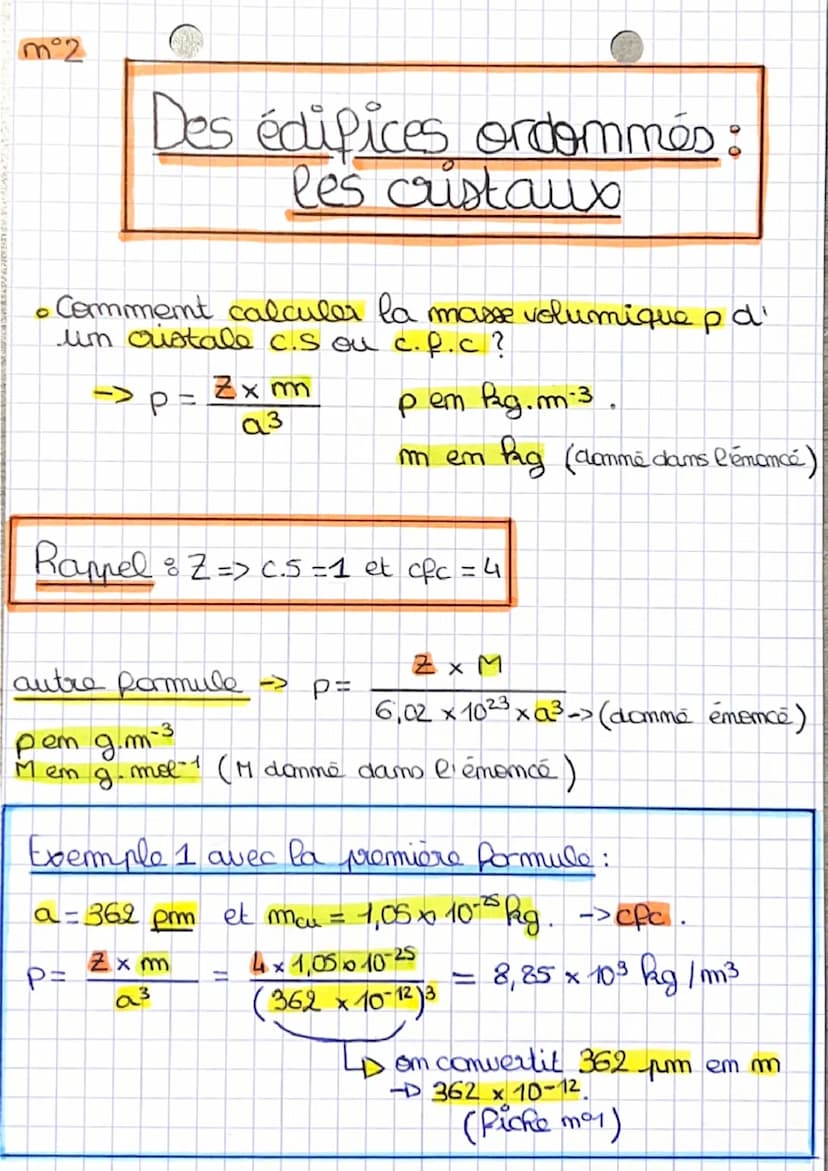 n°2
Des édifices ordonnés :
les cristaux
• Comment calculer la masse volumique ρ d'
un cristale c.s ou c.f.c ?
→ ρ = Z × m / a³
ρ en kg.m⁻³.
m en kg (donné dans l'énoncé)
Rappel : Z => c.s = 1 et cfc = 4
autre formule → ρ = Z × M / 6,02 × 10²³ × a³ → (donné énoncé)
ρ en g.m⁻³
M en g.mol⁻¹ (M donné dans l'énoncé)
Exemple 1 avec la première formule :
a = 362 pm et mcu = 1,05 × 10⁻²⁵ kg. → cfc.
ρ = Z × m / a³ = 4 × 1,05 × 10⁻²⁵ / (362 × 10⁻¹²)³ = 8,85 × 10³ kg/m³
↳ on convertit 362 pm en m
→ 362 × 10⁻¹².
(fiche n°1)